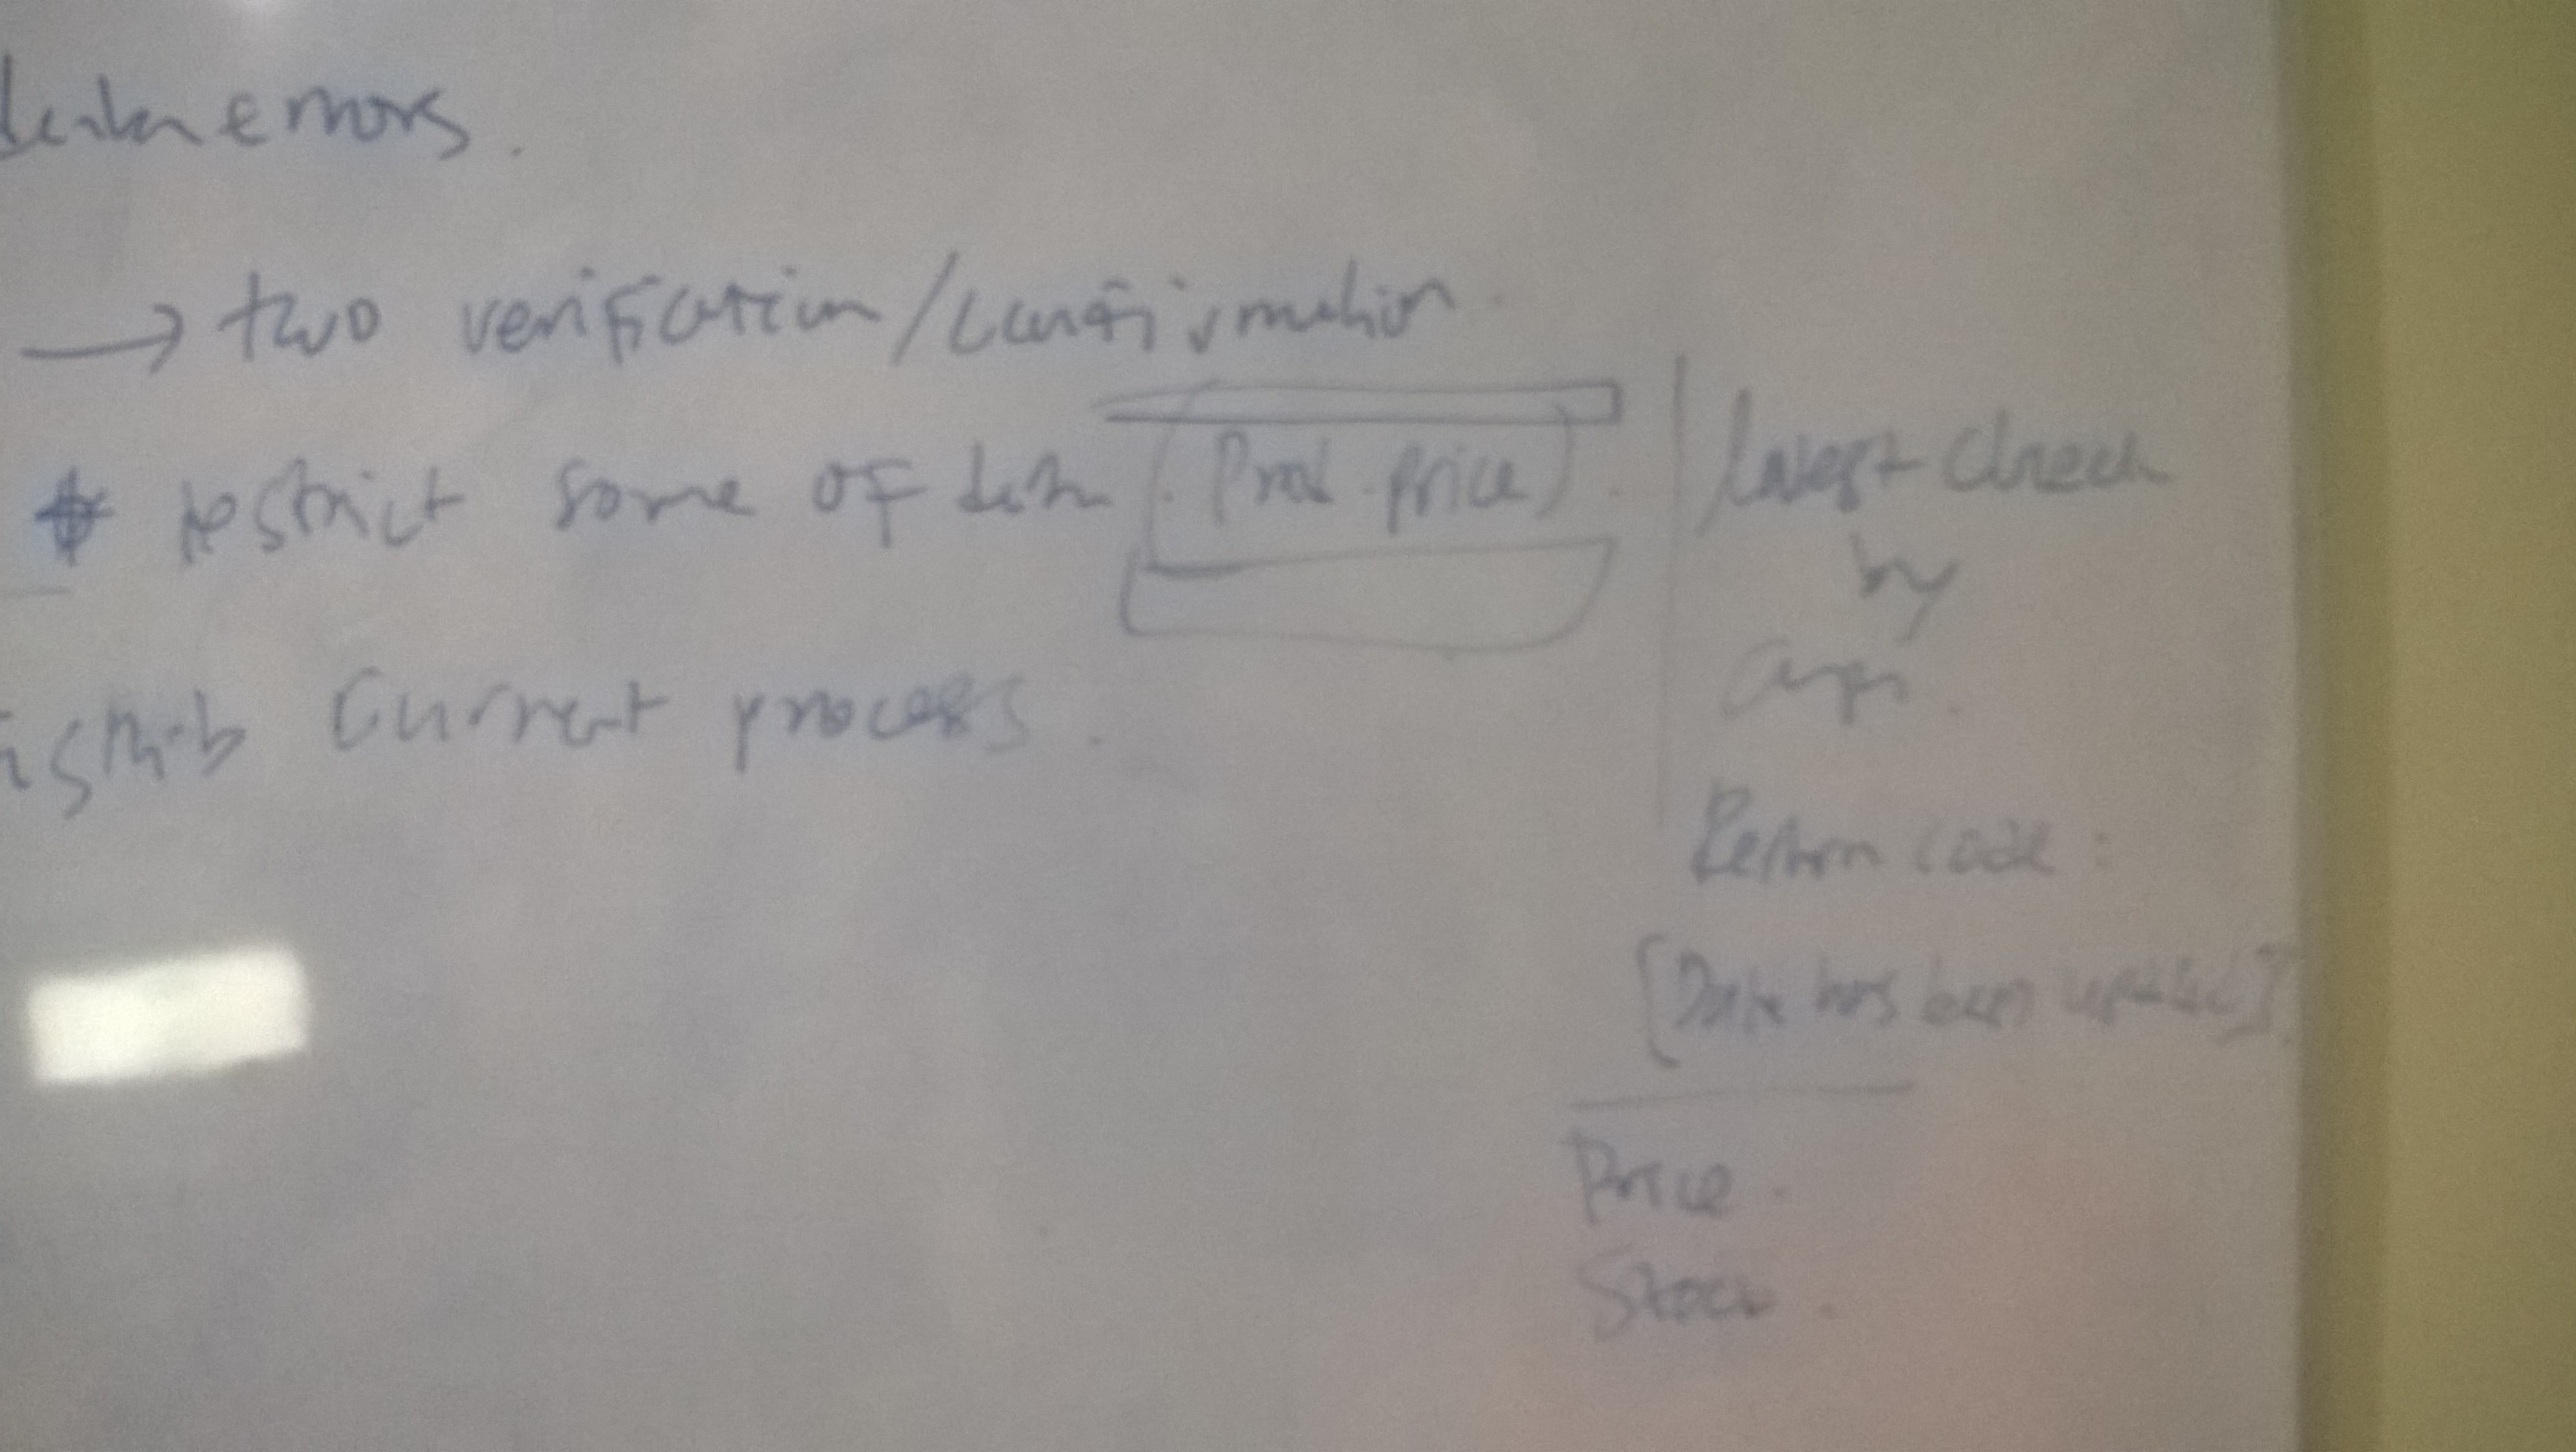 errors.
→ two verification/confirmation
restrict some of data (Prod price).
current process.
check
by
Return code:
[Data has been updated]
Price.
Stock.